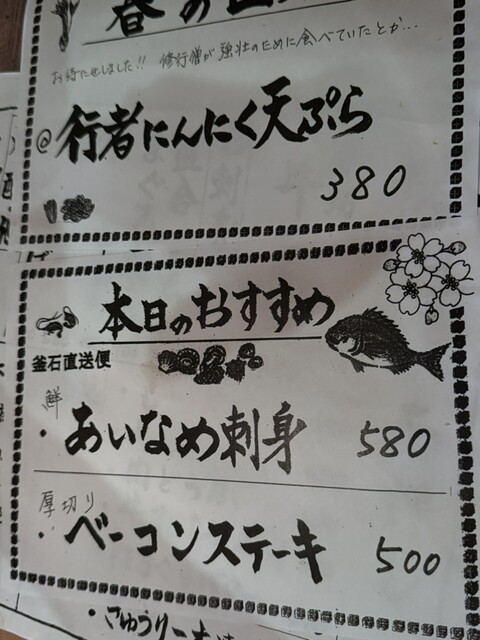 春の
お待たせしました!! 修行僧が強壮のために食べていたとか…
@行者にんにく天ぷら
380
本日のおすすめ
釜石直送便
鮮
・あいなめ刺身 580
厚切り
・ベーコンステーキ 500
・きゅうり一本漬